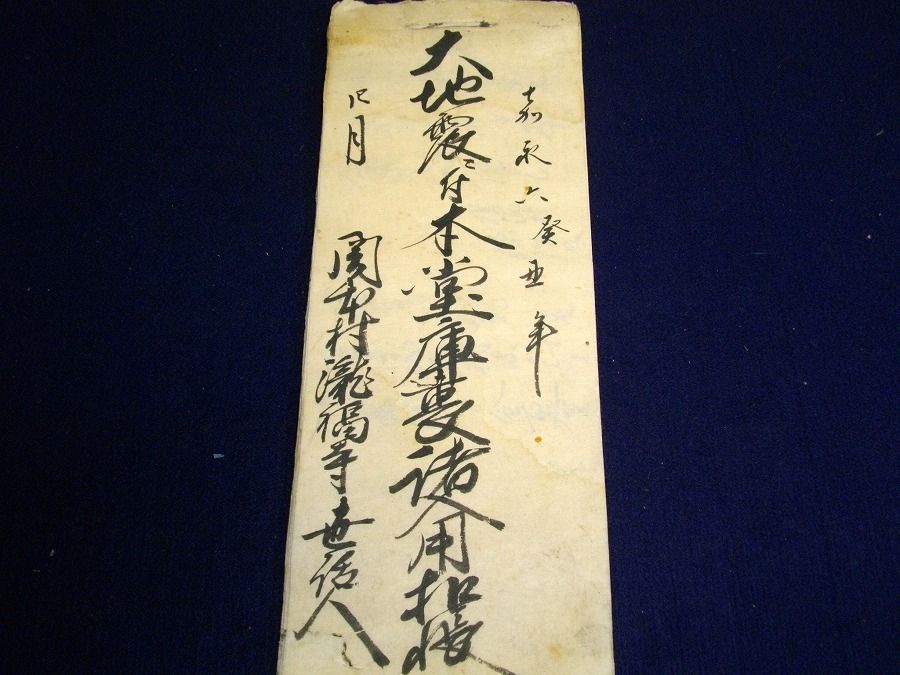 嘉永六癸丑年
大地震ニ付本堂庫裏諸入用扣帳
月
関本村瀧福寺世話人